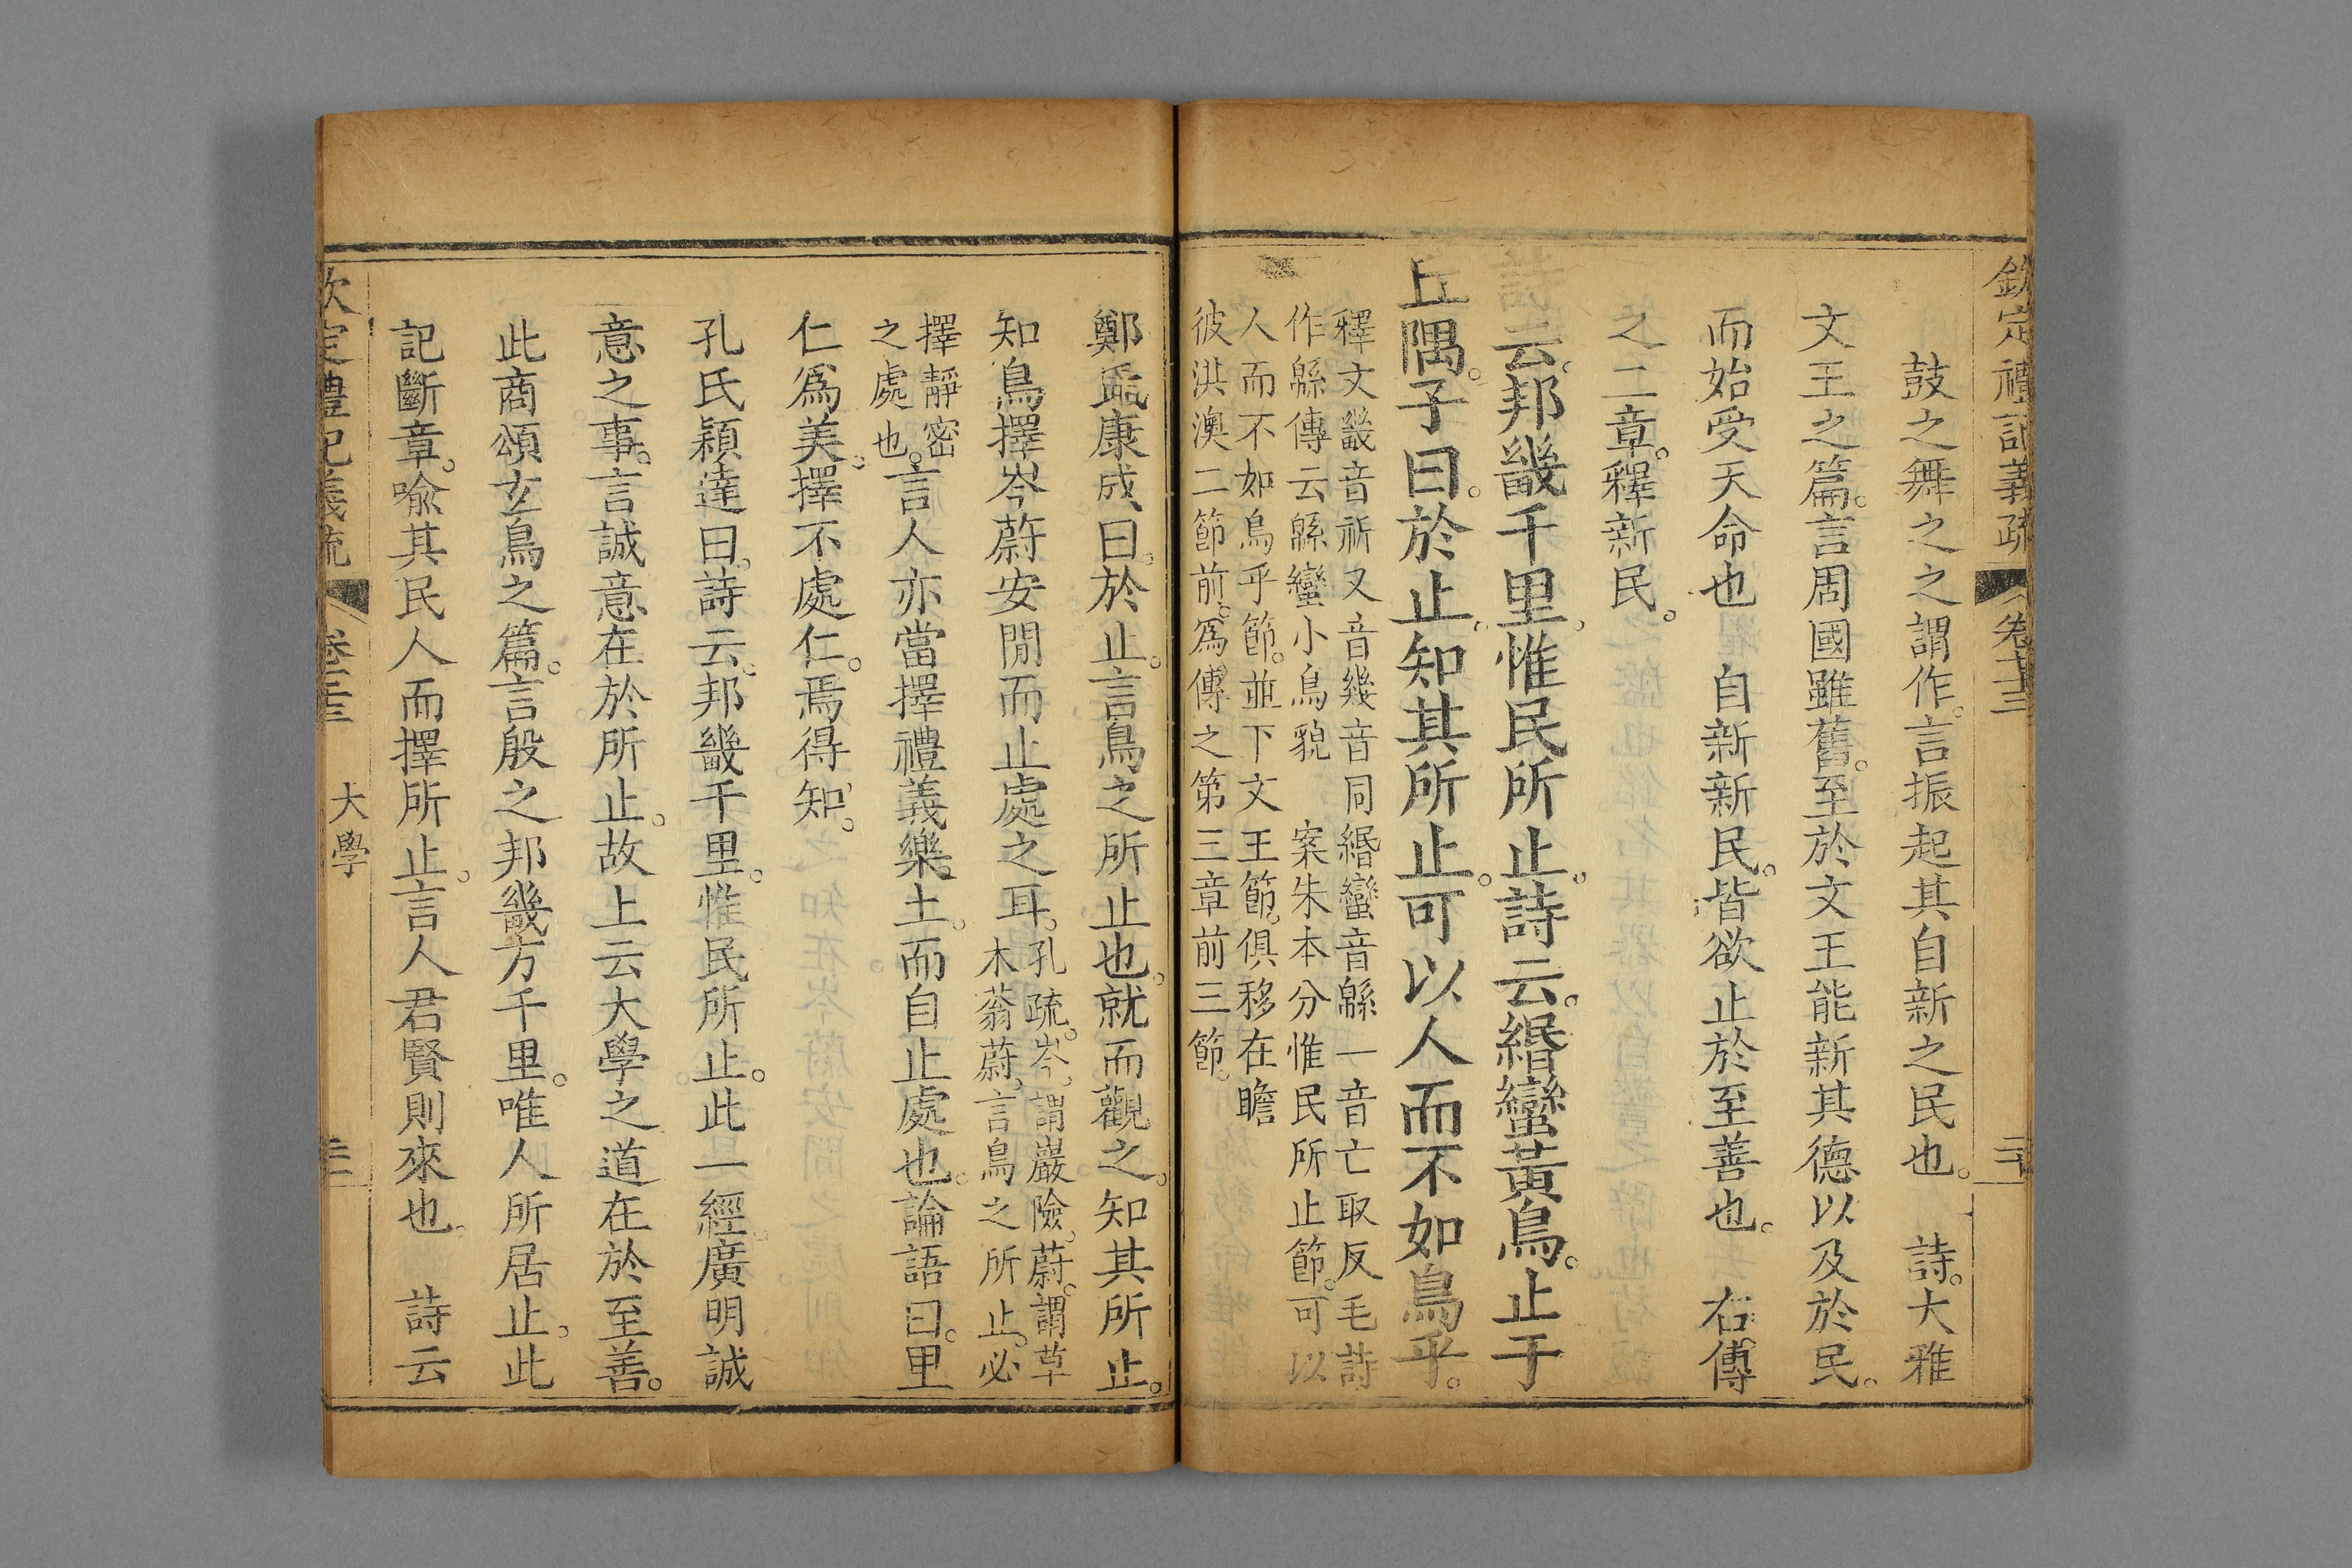 欽定禮記義疏 卷七十三
鼓之舞之之謂作。言振起其自新之民也。 詩。大雅
文王之篇。言周國雖舊。至於文王能新其德以及於民。
而始受天命也 自新新民。皆欲止於至善也。 右傳
之二章。釋新民。
云。邦畿千里。惟民所止。詩云。緡蠻黃鳥。止于
丘隅。子曰。於止。知其所止。可以人而不如鳥乎。
釋文畿音祈又音幾音同緡蠻音緜一音亡取反毛詩
作緜傳云緜蠻小鳥貌 案朱本分惟民所止節。可以
人而不如鳥乎節。並下文王節。俱移在瞻
彼淇澳二節前。爲傳之第三章前三節。
鄭氏康成曰。於止。言鳥之所止也。就而觀之。知其所止。
知鳥擇岑蔚安閒而止處之耳。孔疏。岑。謂巖險。蔚。謂草
木蓊蔚。言鳥之所止。必
擇靜密
之處也。言人亦當擇禮義樂土。而自止處也。論語曰。里
仁爲美。擇不處仁。焉得知。
孔氏穎達曰。詩云。邦畿千里。惟民所止。此一經。廣明誠
意之事。言誠意在於所止。故上云大學之道在於至善。
此商頌玄鳥之篇。言殷之邦畿方千里。唯人所居止。此
記斷章。喻其民人而擇所止。言人君賢則來也。 詩云
欽定禮記義疏 卷七十三 大學